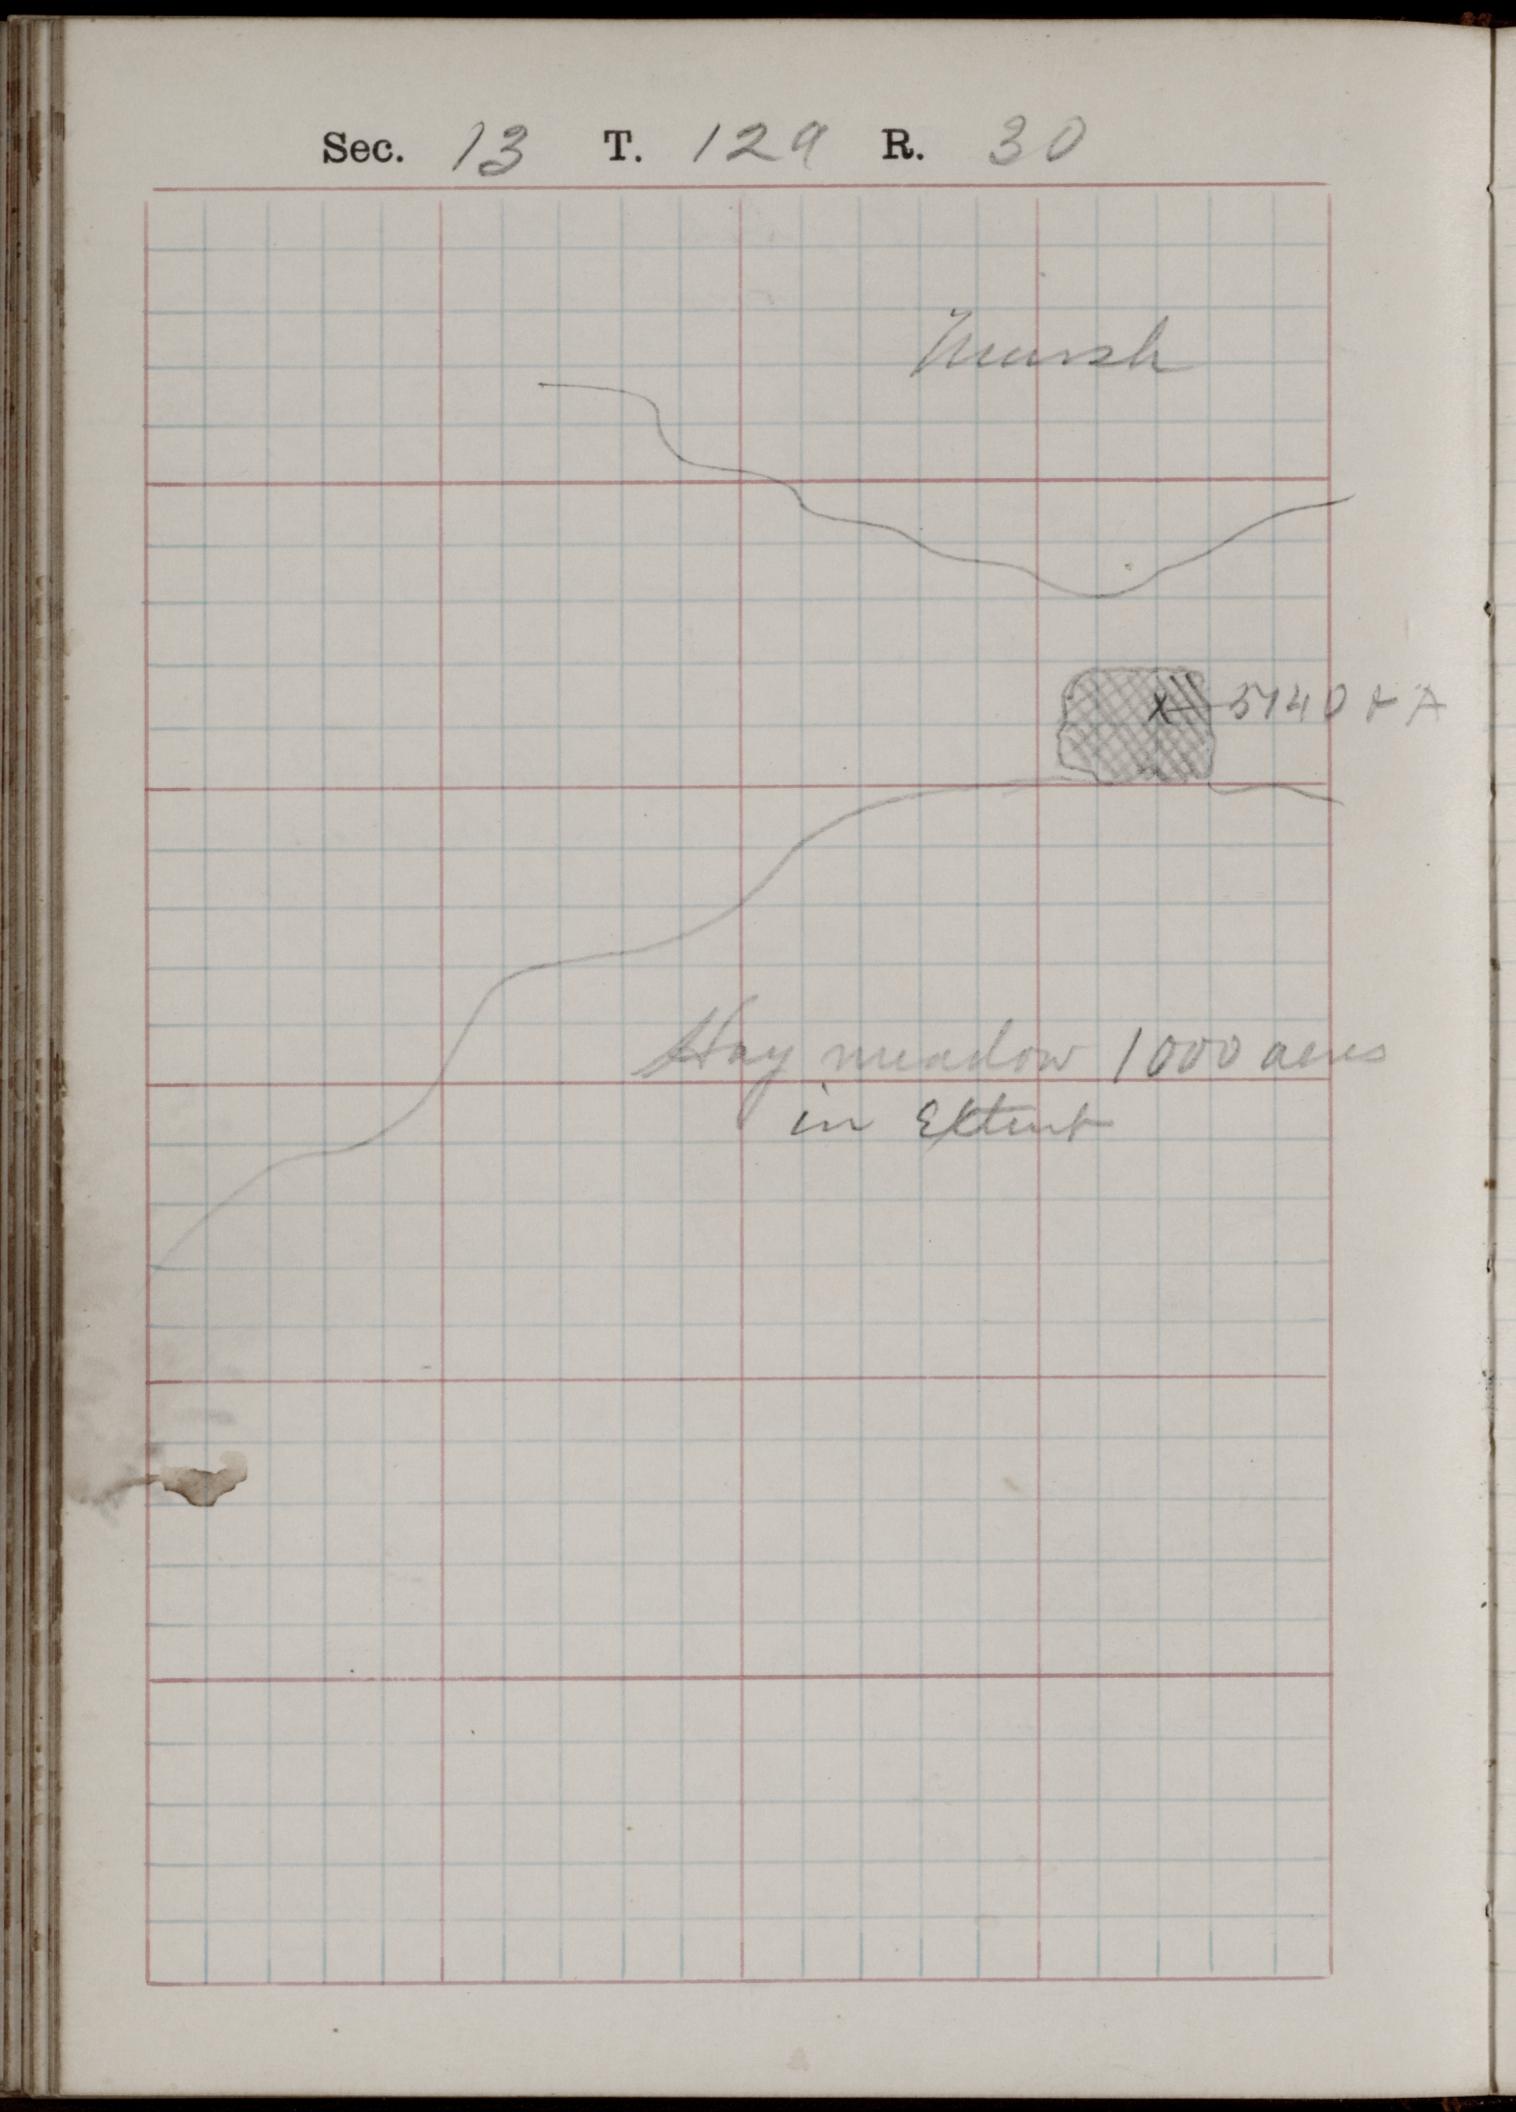 Sec. 13 T. 129 R. 30
Marsh
X 5140 + A
Hay meadow 1000 acres
in Extent